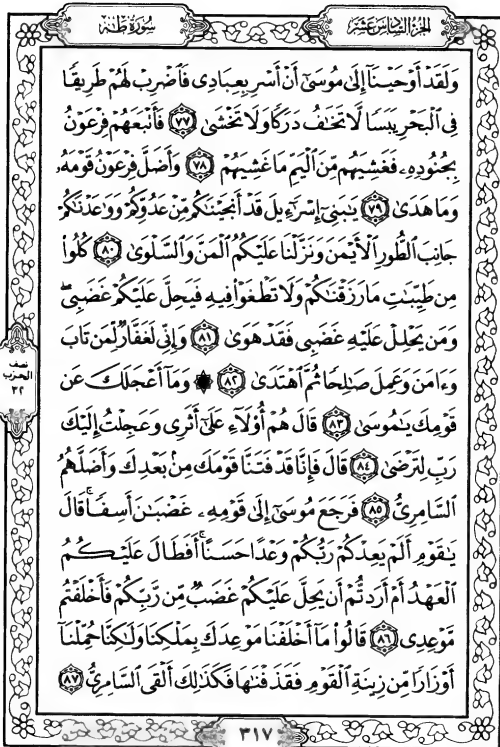 سُورَةُ طه
الجُزْءُ السَّادِسَ عَشَرَ
وَلَقَدْ أَوْحَيْنَآ إِلَىٰ مُوسَىٰٓ أَنْ أَسْرِ بِعِبَادِى فَٱضْرِبْ لَهُمْ طَرِيقًا
فِى ٱلْبَحْرِ يَبَسًا لَّا تَخَٰفُ دَرَكًا وَلَا تَخْشَىٰ ٧٧ فَأَتْبَعَهُمْ فِرْعَوْنُ
بِجُنُودِهِۦ فَغَشِيَهُم مِّنَ ٱلْيَمِّ مَا غَشِيَهُمْ ٧٨ وَأَضَلَّ فِرْعَوْنُ قَوْمَهُۥ
وَمَا هَدَىٰ ٧٩ يَٰبَنِىٓ إِسْرَٰٓءِيلَ قَدْ أَنجَيْنَٰكُم مِّنْ عَدُوِّكُمْ وَوَٰعَدْنَٰكُمْ
جَانِبَ ٱلطُّورِ ٱلْأَيْمَنَ وَنَزَّلْنَا عَلَيْكُمُ ٱلْمَنَّ وَٱلسَّلْوَىٰ ٨٠ كُلُوا۟
مِن طَيِّبَٰتِ مَا رَزَقْنَٰكُمْ وَلَا تَطْغَوْا۟ فِيهِ فَيَحِلَّ عَلَيْكُمْ غَضَبِىۖ
وَمَن يَحْلِلْ عَلَيْهِ غَضَبِى فَقَدْ هَوَىٰ ٨١ وَإِنِّى لَغَفَّارٌ لِّمَن تَابَ
وَءَامَنَ وَعَمِلَ صَٰلِحًا ثُمَّ ٱهْتَدَىٰ ٨٢ ۞ وَمَآ أَعْجَلَكَ عَن
نصف
الحزب
٣٢
قَوْمِكَ يَٰمُوسَىٰ ٨٣ قَالَ هُمْ أُو۟لَآءِ عَلَىٰٓ أَثَرِى وَعَجِلْتُ إِلَيْكَ
رَبِّ لِتَرْضَىٰ ٨٤ قَالَ فَإِنَّا قَدْ فَتَنَّا قَوْمَكَ مِنۢ بَعْدِكَ وَأَضَلَّهُمُ
ٱلسَّامِرِىُّ ٨٥ فَرَجَعَ مُوسَىٰٓ إِلَىٰ قَوْمِهِۦ غَضْبَٰنَ أَسِفًاۚ قَالَ
يَٰقَوْمِ أَلَمْ يَعِدْكُمْ رَبُّكُمْ وَعْدًا حَسَنًاۚ أَفَطَالَ عَلَيْكُمُ
ٱلْعَهْدُ أَمْ أَرَدتُّمْ أَن يَحِلَّ عَلَيْكُمْ غَضَبٌ مِّن رَّبِّكُمْ فَأَخْلَفْتُم
مَّوْعِدِى ٨٦ قَالُوا۟ مَآ أَخْلَفْنَا مَوْعِدَكَ بِمَلْكِنَا وَلَٰكِنَّا حُمِّلْنَآ
أَوْزَارًا مِّن زِينَةِ ٱلْقَوْمِ فَقَذَفْنَٰهَا فَكَذَٰلِكَ أَلْقَى ٱلسَّامِرِىُّ ٨٧
٣١٧